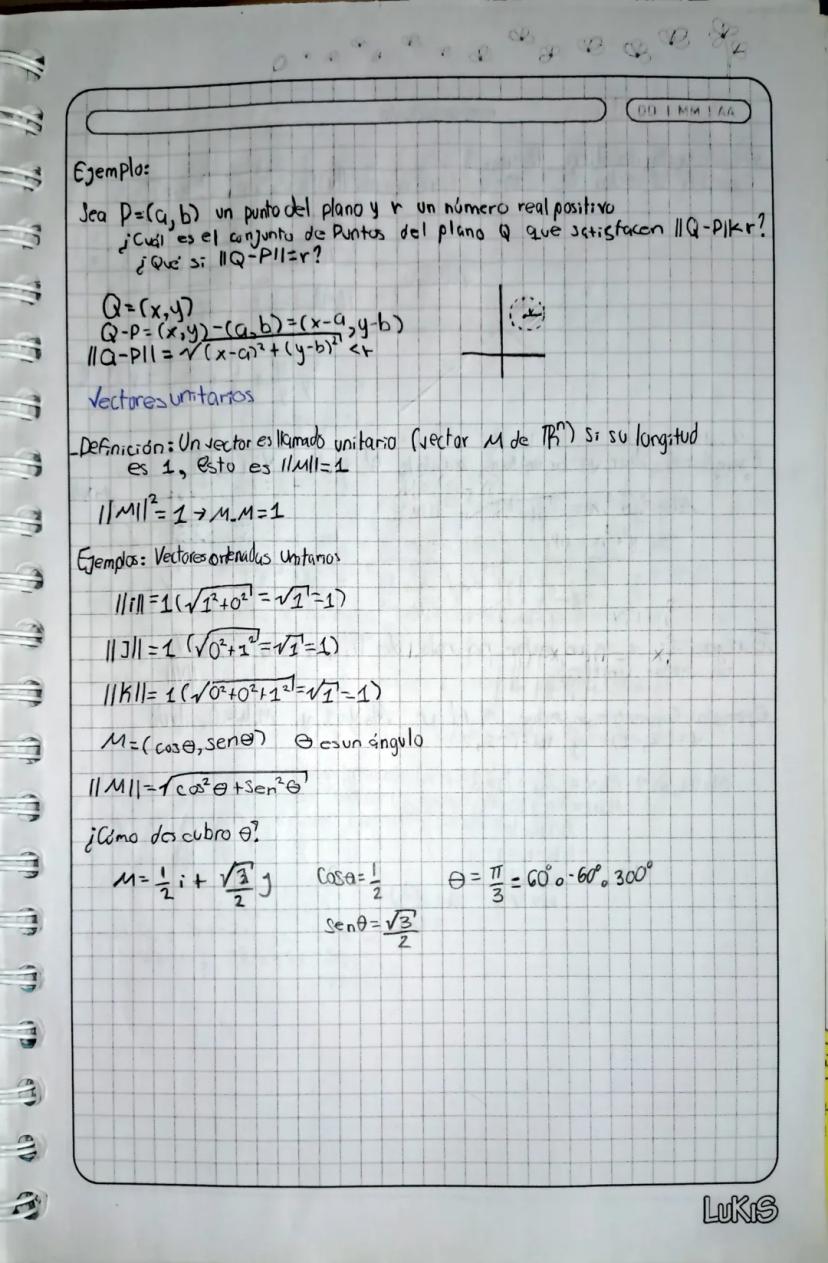 DD | MM | AA
Ejemplo:
Sea P=(a,b) un punto del plano y r un número real positivo
¿Cuál es el conjunto de Puntos del plano Q que satisfacen ||Q-P||<r?
¿Qué si ||Q-P||=r?
Q=(x,y)
Q-P=(x,y)-(a,b)=(x-a,y-b)
||Q-P||=√(x-a)²+(y-b)² <r
Vectores unitarios
-Definición: Un vector es llamado unitario (vector M de ℝⁿ) si su longitud
es 1, esto es ||M||=1
||M||²=1→M.M=1
Ejemplos: Vectores ordenadas unitarios
||i||=1(√1²+0²=√1=1)
||J||=1 (√0²+1²=√1=1)
||K||=1(√0²+0²+1²=√1=1)
M=(cosθ,senθ) θ es un ángulo
||M||=√cos²θ+sen²θ
¿Cómo descubro θ?
M=1/2 i+√3/2 j Cosθ=1/2 θ=π/3=60° o -60° o 300°
senθ=√3/2
LuKiS